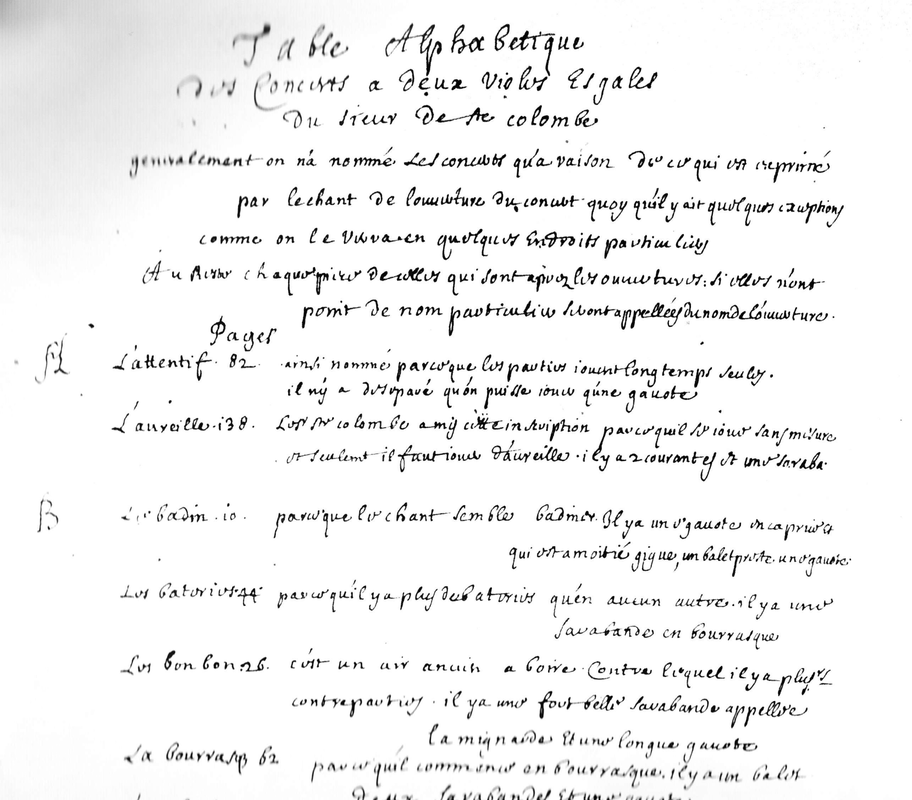 Table Alphabetique
Des Concerts a deux violes Esgales
Du sieur De Ste colombe
generalement on n'a nommé Les concerts qu'a raison De ce qui est exprimé
par le chant de louverture du concert quoy qu'il y ait quelques exceptions
comme on le verra en quelques Endroits particuliers
Au Reste chaque piece de celles qui sont aprez les ouvertures. si elles n'ont
point de nom particulier seront appellées du nom de l'ouverture.
Pages
A
L'attentif. 82. ainsi nommé parceque les parties iouent longtemps seules.
il n'y a de separé qu'on puisse iouer q'une gavote
L'aureille. 138. Le sr Ste colombe a mis cette inscription parcequ'il se ioue sans mesure
et seulemt il faut iouer d'aureille. il y a 2 courantes et une saraba.
B
Le badin. 10. parceque le chant semble badiner. Il ya une gavote en caprice et
qui est a moitié gigue, un balet preste. une gavote.
Les batories 44 parcequ'il y a plus de batories qu'en aucun autre. il y a une
saravande en bourrasque
Les bonbon. 26. c'est un air ancien a boire. Contre lequel il y a plusrs
contreparties. il ya une fort belle saravande appellée
la mignarde Et une longue gavote
La bourrasq 62 parcequ'il commence en bourrasque. il y a un balet
Deux saravandes Et une gavote